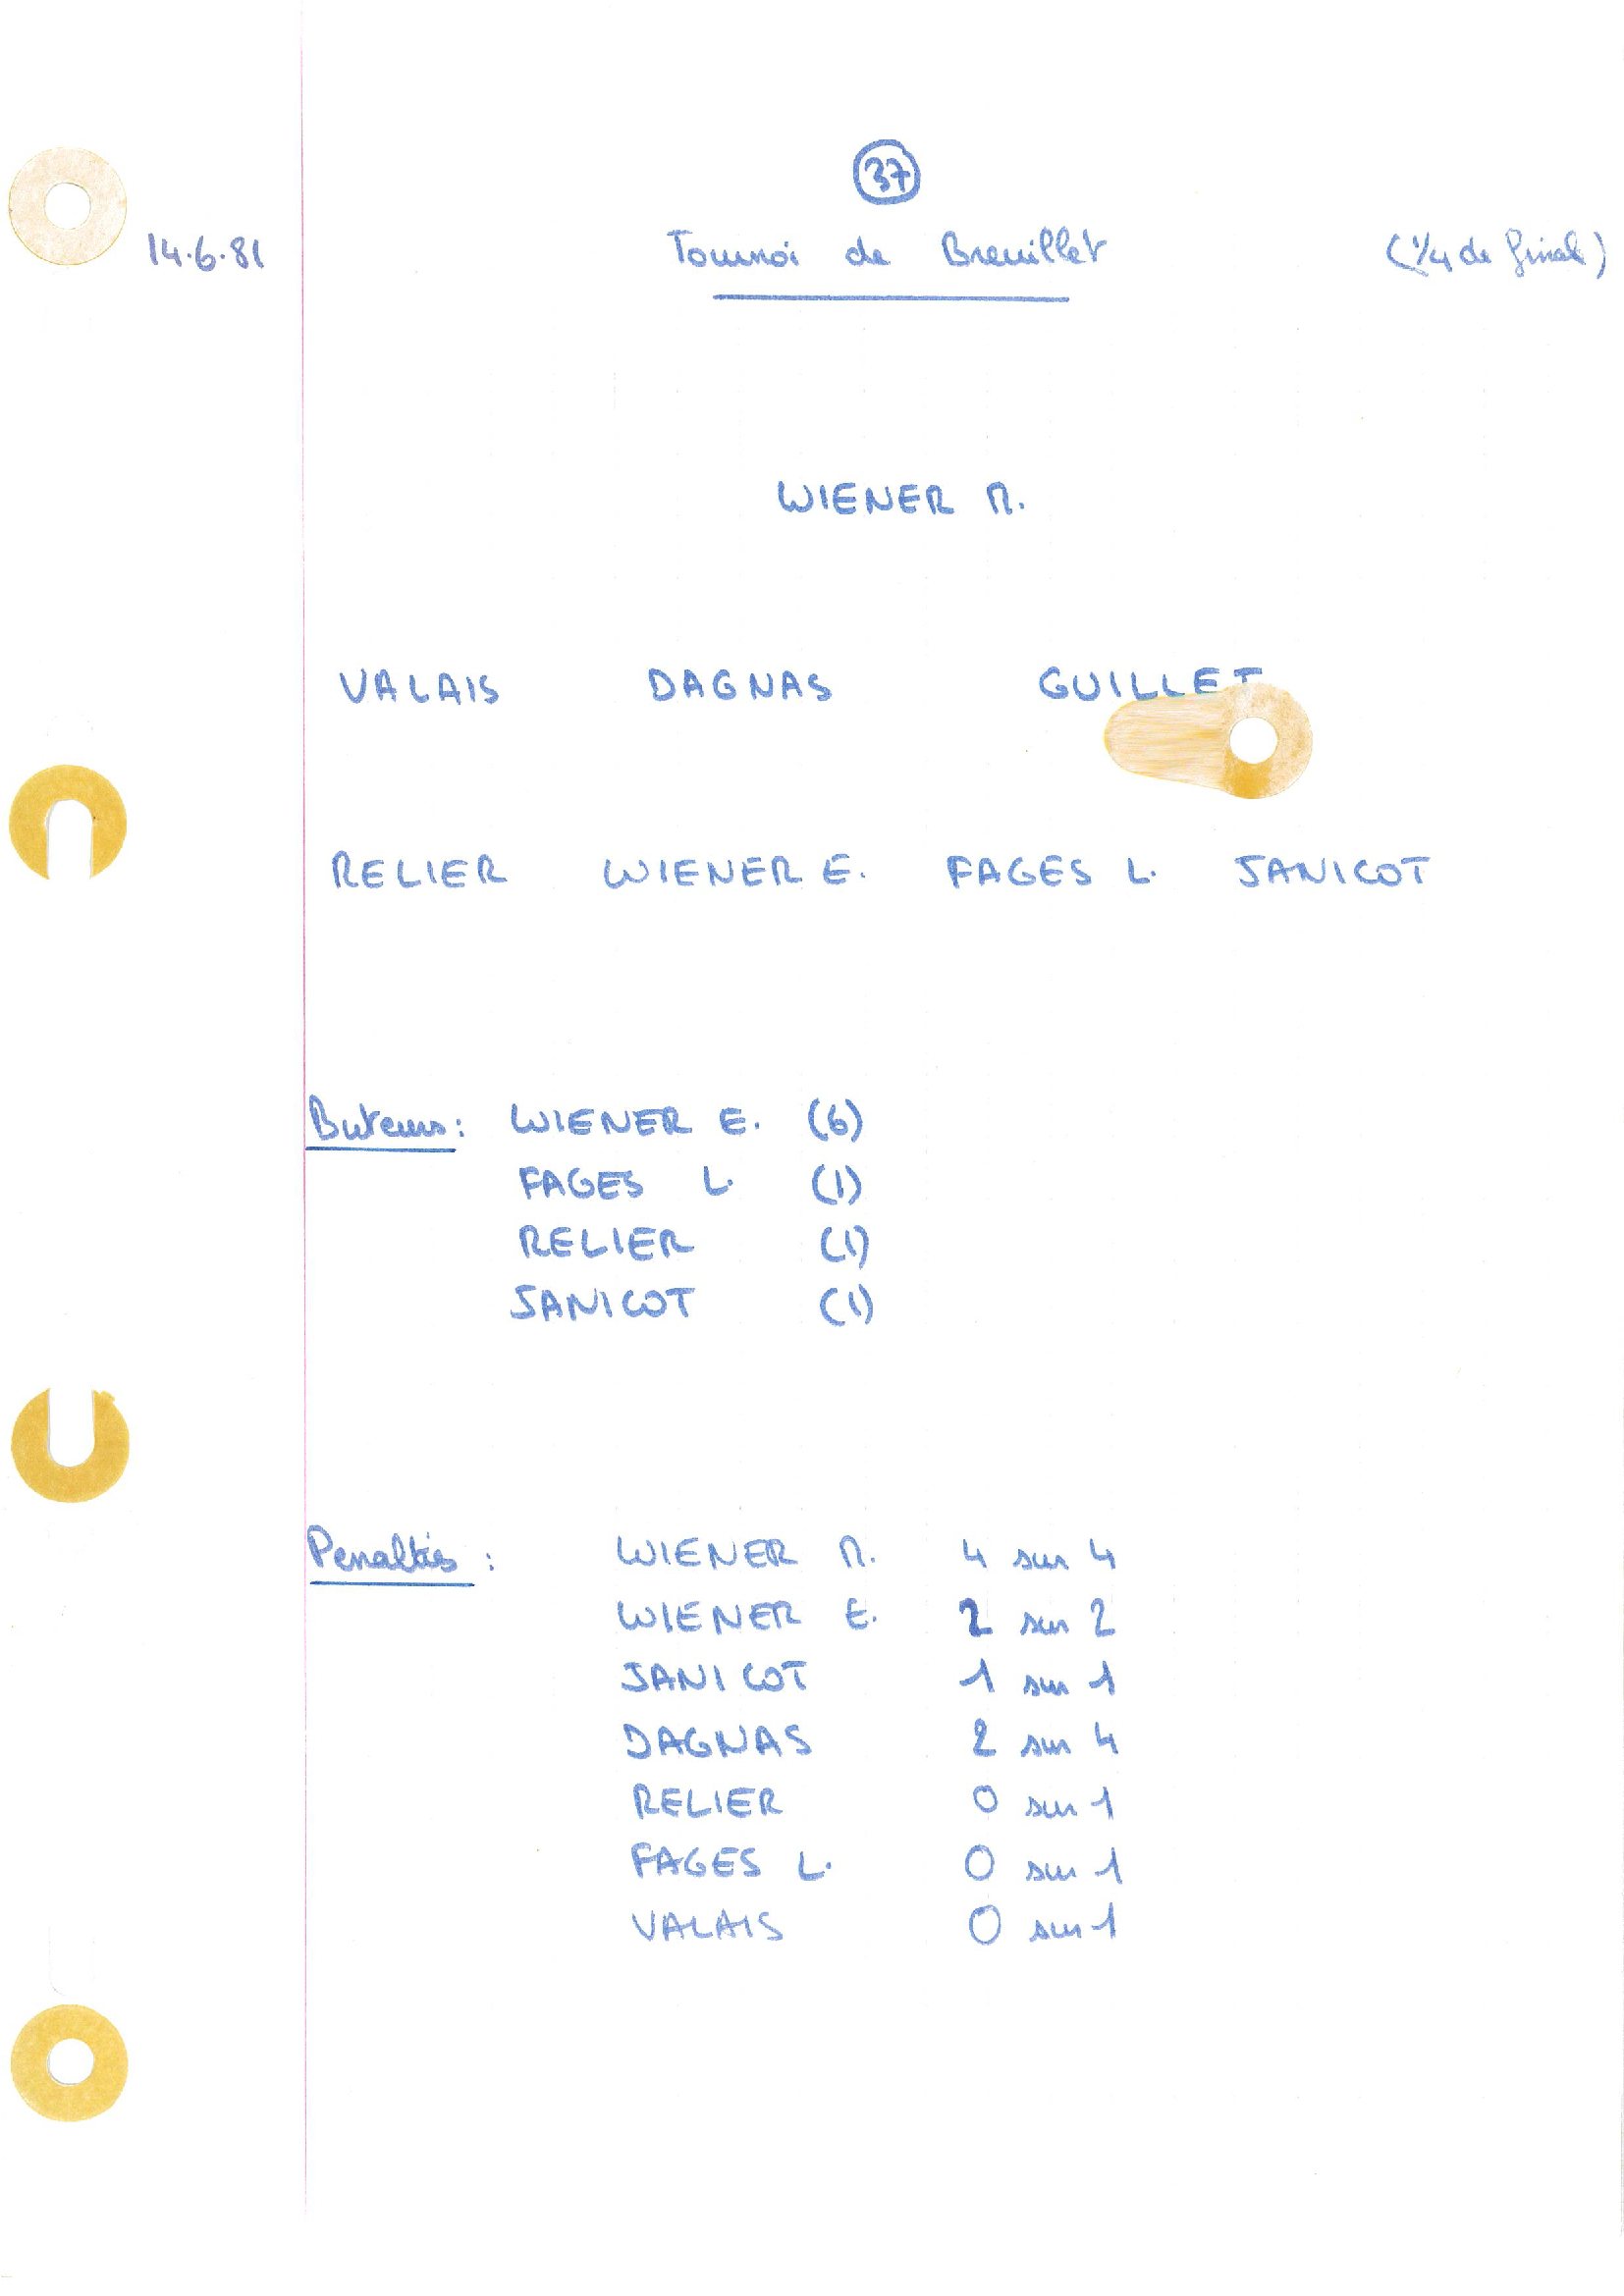 37
14.6.81 Tournoi de Breuillet (1/4 de finale)
WIENER M.
VALAIS DAGNAS GUILLET
RELIER WIENER E. FAGES L. JANICOT
Buteurs: WIENER E. (6)
FAGES L. (1)
RELIER (1)
JANICOT (1)
Penalties : WIENER M. 4 sur 4
WIENER E. 2 sur 2
JANICOT 1 sur 1
DAGNAS 2 sur 4
RELIER 0 sur 1
FAGES L. 0 sur 1
VALAIS 0 sur 1